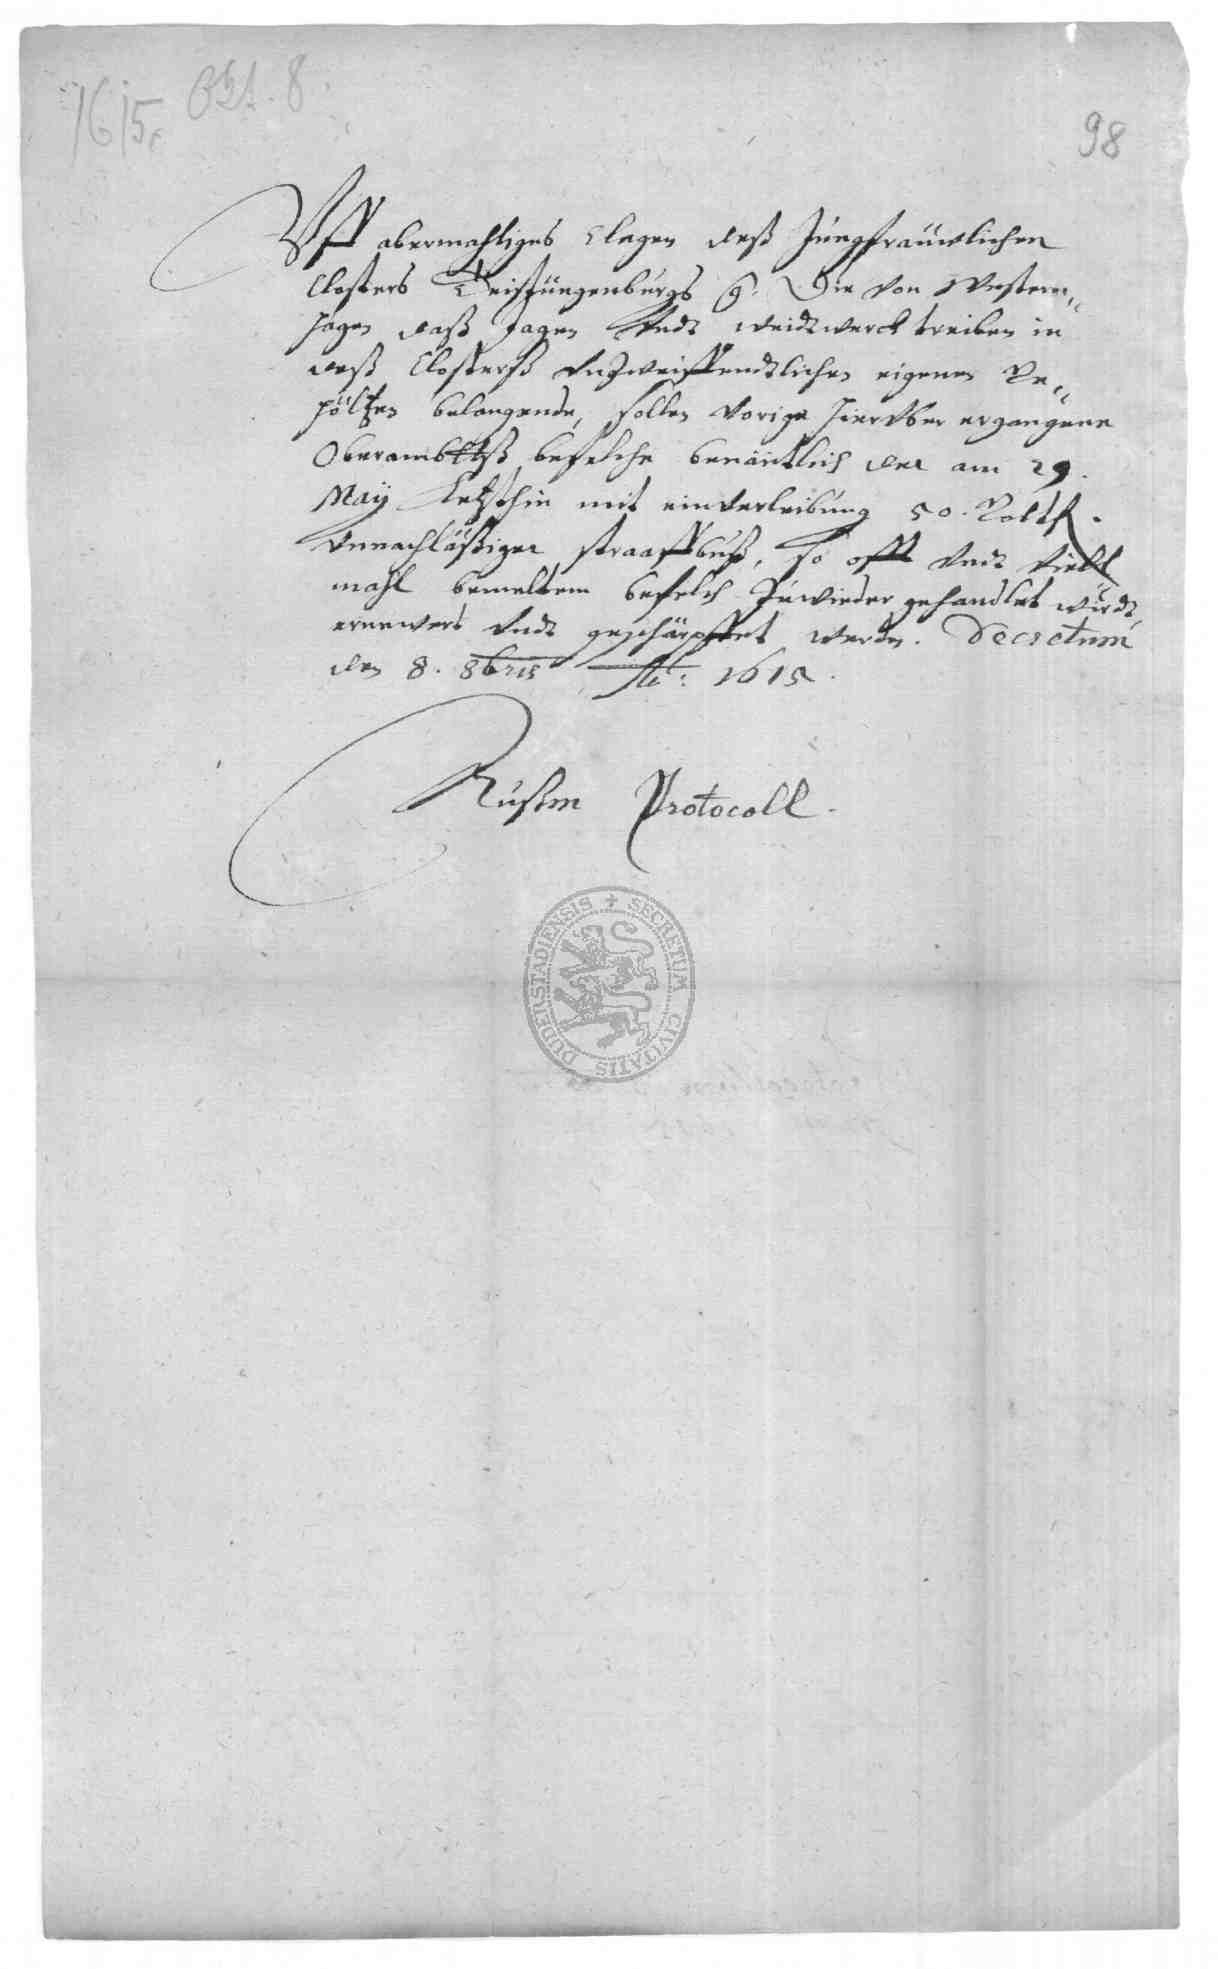 1615. Okt. 8.
98
Vff abermahliges Clagen deß Jungfräuwlichen
Closters Teistungenburgs Die von Western¬
hagen daß Jagen vndt weidtwerck treiben in
deß Closterß vnzweiffendtlichen eigenen Ge¬
höltzen belangende, sollen vorige hierüber ergangene
Oberambtß befelche benäntlich der am 29.
Maÿ letzthin mit einverleibung 50. Goltfl.
vnnachläßiger straaffbuß, so offt vndt viel
mahl bemeltem befelch zuwieder gehandlet wirdt,
ernewert vndt geschärpffet werden. Decretum
den 8. 8bris Ao: 1615.
Protocoll.
SECRETUM CIVITATIS DUDERSTADIENSIS